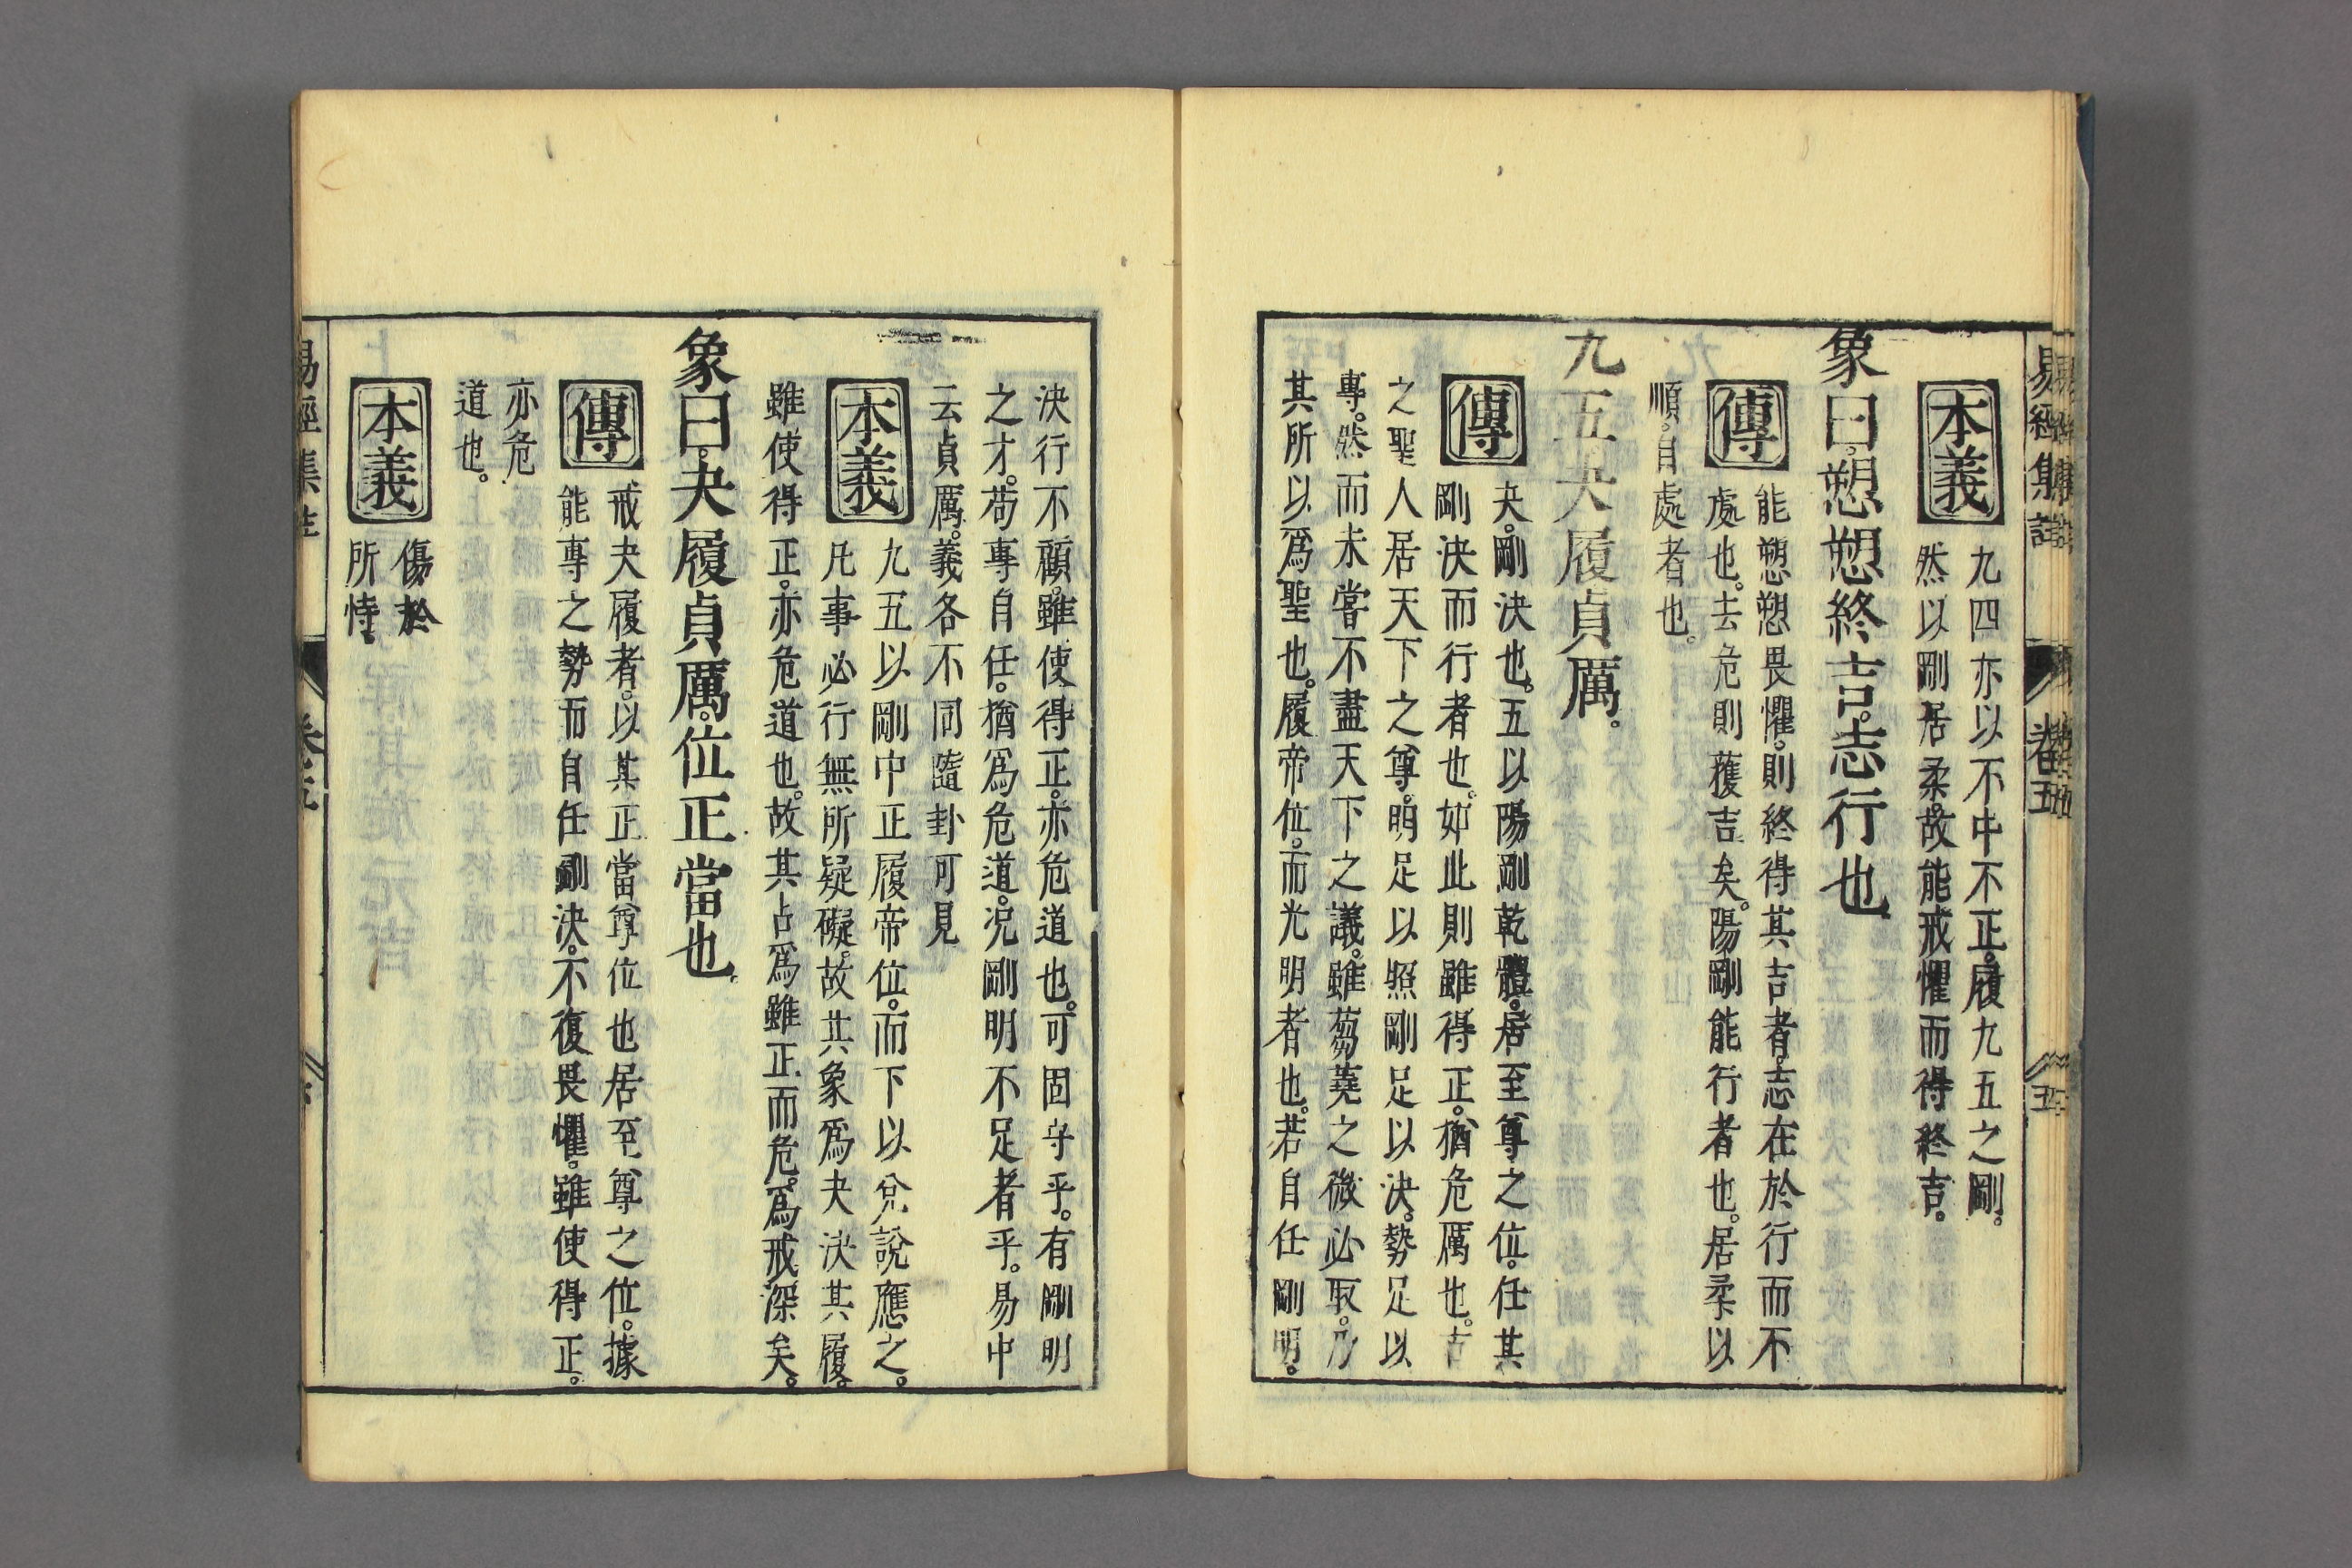 易經集註
卷五
五
本義
九四亦以不中不正。履九五之剛。
然以剛居柔。故能戒懼而得終吉。
象曰。愬愬終吉。志行也。
傳
能愬愬畏懼。則終得其吉者。志在於行而不
處也。去危則獲吉矣。陽剛能行者也。居柔以
順。自處者也。
九五。夬履貞厲。
傳
夬。剛決也。五以陽剛乾體。居至尊之位。任其
剛決而行者也。如此則雖得正。猶危厲也。古
之聖人居天下之尊。明足以照剛足以決。勢足以
專。然而未嘗不盡天下之議。雖蒭蕘之微必取。乃
其所以爲聖也。履帝位。而光明者也。若自任剛明。
決行不顧。雖使得正。亦危道也。可固守乎。有剛明
之才。苟專自任。猶爲危道。况剛明不足者乎。易中
云貞厲。義各不同隨卦可見
本義
九五以剛中正履帝位。而下以兌說應之。
凡事必行無所疑礙。故其象爲夬決其履。
雖使得正。亦危道也。故其占爲雖正而危。爲戒深矣。
象曰。夬履貞厲。位正當也。
傳
戒夬履者。以其正當尊位也居至尊之位。據
能專之勢而自任剛決。不復畏懼。雖使得正。
亦危
道也。
本義
傷於
所恃。
易經集註
卷五